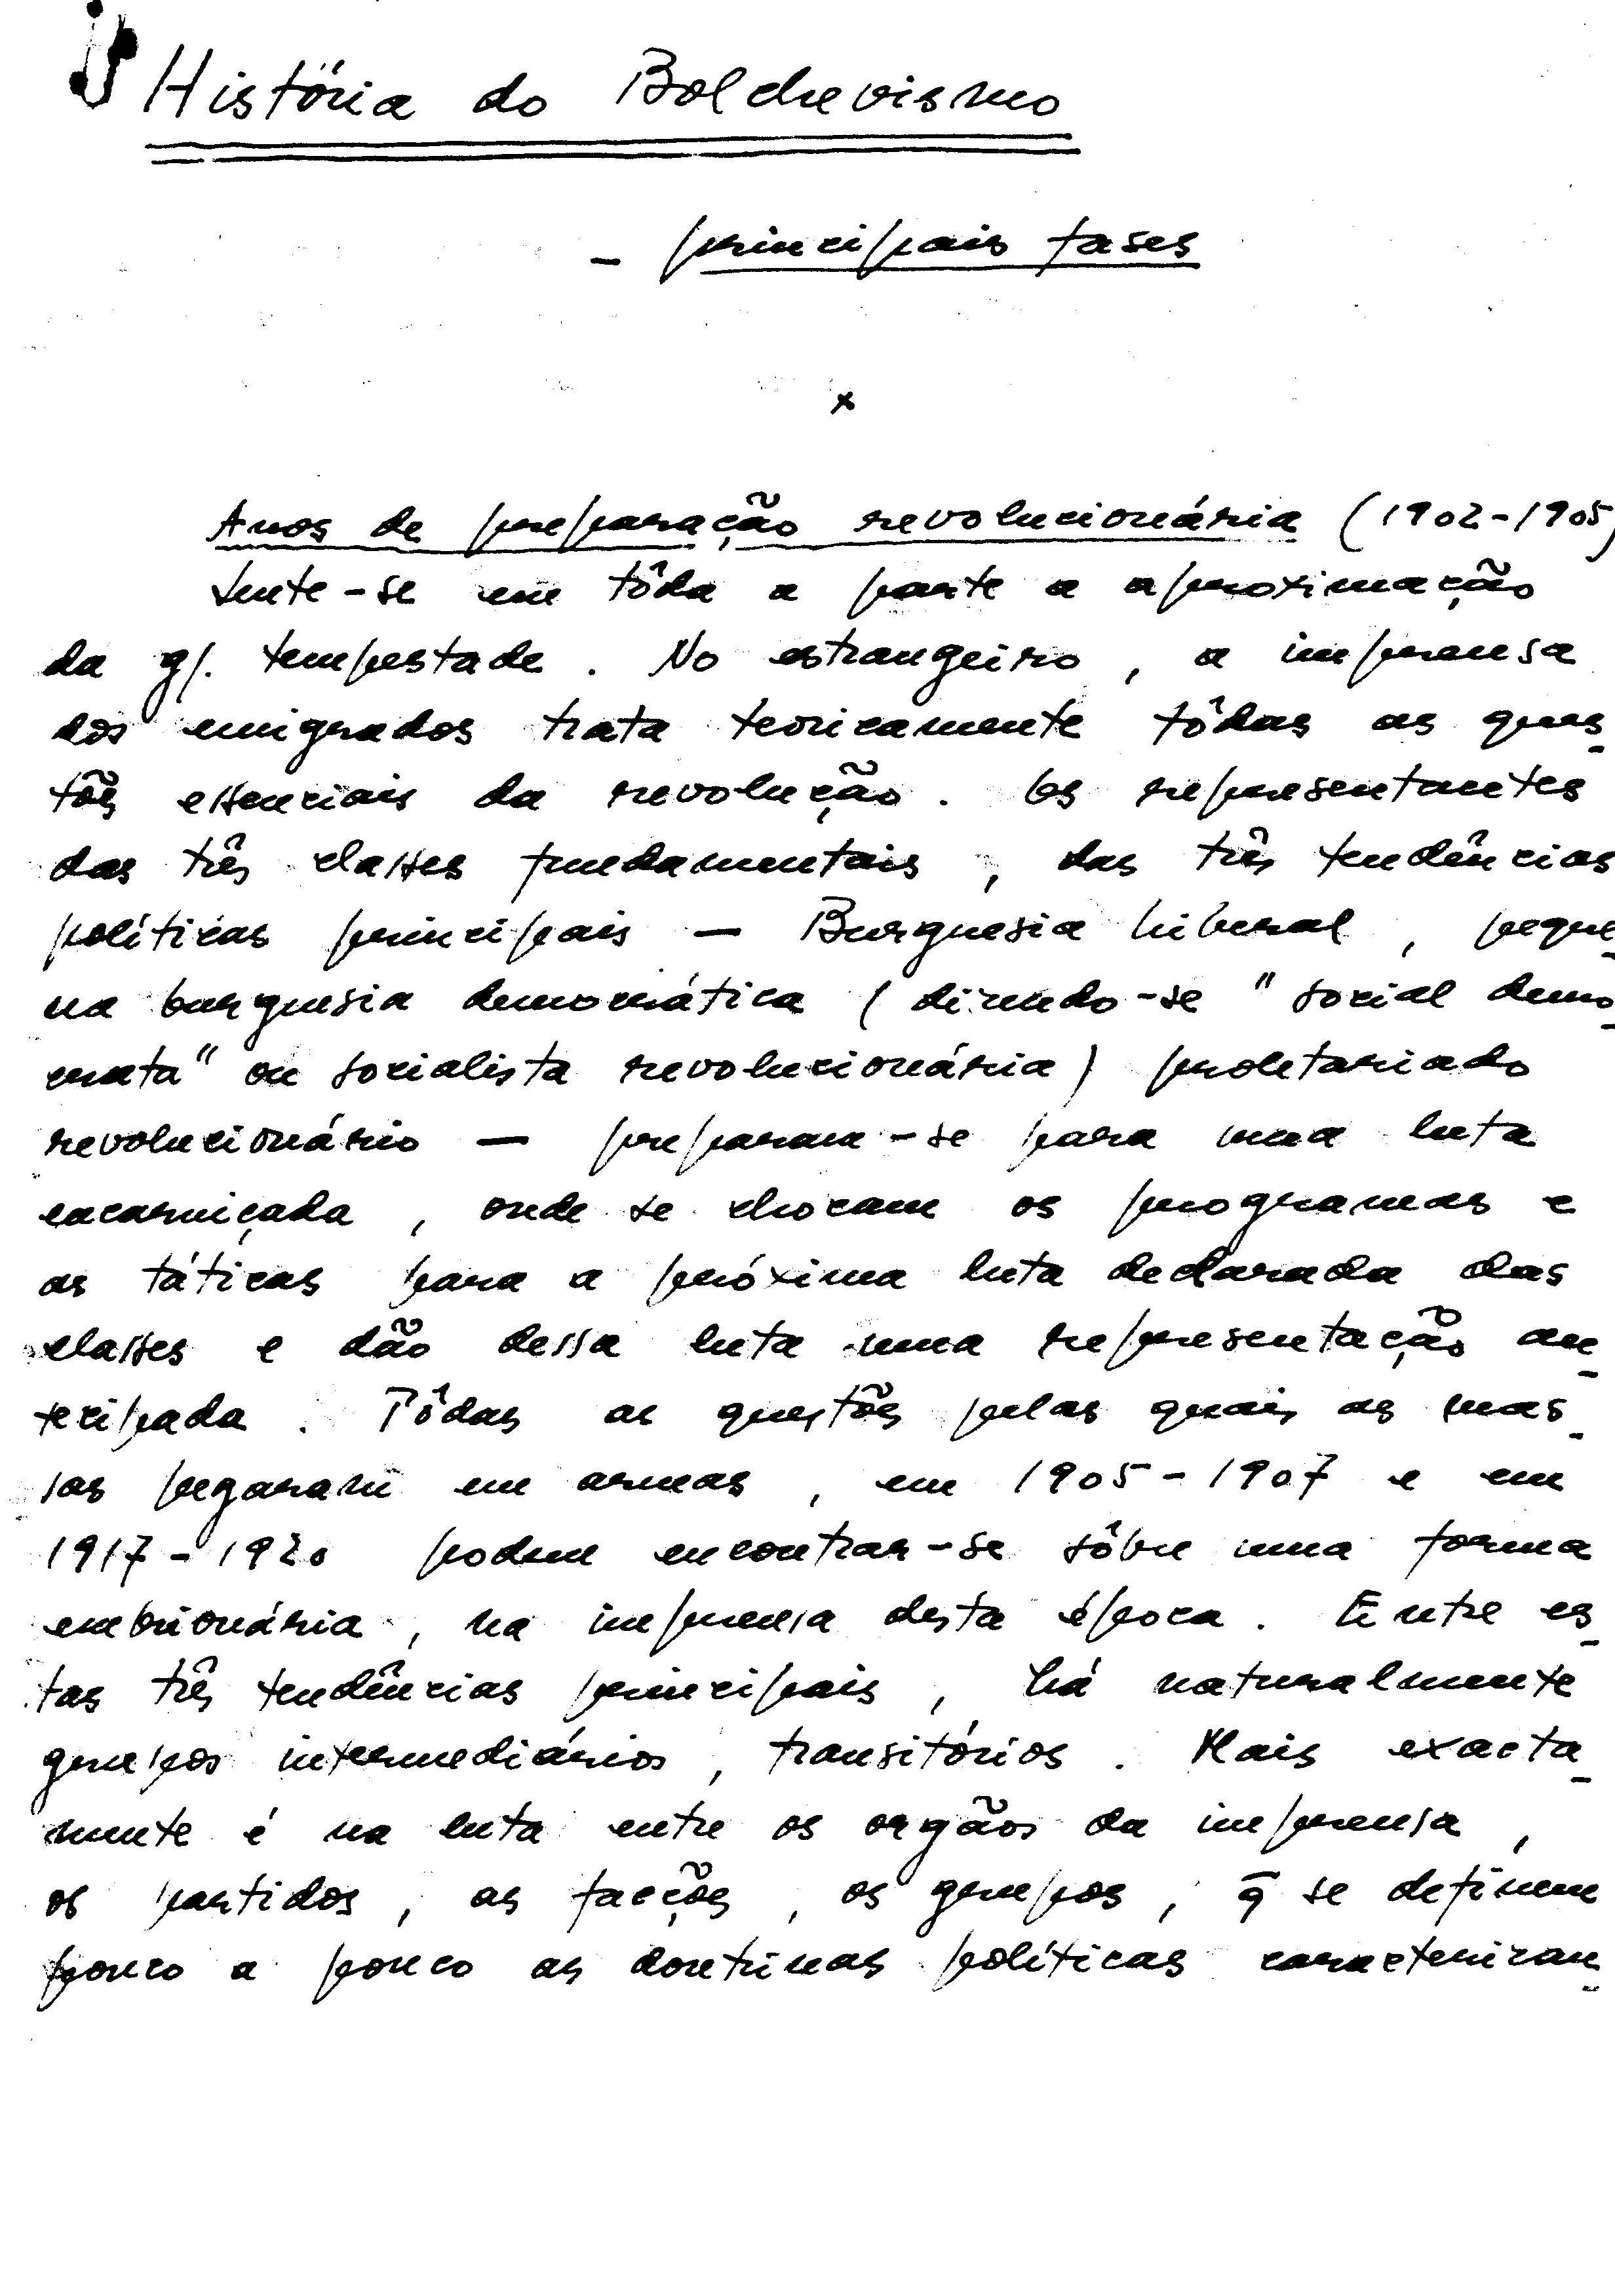 História do Bolchevismo
- principais fases
x
Anos de preparação revolucionária (1902-1905)
Sente-se em tôda a parte a aproximação
da gr. tempestade. No estrangeiro, a imprensa
dos emigrados trata teoricamente tôdas as ques_
tões essenciais da revolução. Os representantes
das três classes fundamentais, das três tendências
políticas principais — Burguesia liberal, peque_
na burguesia democrática (dizendo-se "social demo_
crata" ou socialista revolucionária) proletariado
revolucionário — preparam-se para uma luta
encarniçada, onde se chocam os programas e
as táticas para a próxima luta declarada das
classes e dão dessa luta uma representação an_
tecipada. Tôdas as questões pelas quais as mas_
sas pegaram em armas, em 1905-1907 e em
1917-1920 podem encontrar-se sôbre uma forma
embrionária, na imprensa desta época. Entre es_
tas três tendências principais, há naturalmente
grupos intermediários, transitórios. Mais exacta_
mente é na luta entre os orgãos da imprensa,
os partidos, as facções, os grupos, q̄ se definem
pouco a pouco as doutrinas políticas caracterizan_